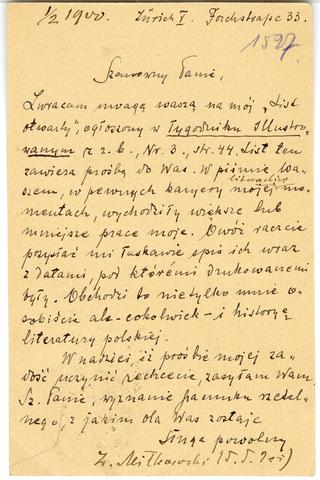 1/2 1900. Zürich V. Forchstrasse 33.
1597
Szanowny Panie,
Zwracam uwagę waszą na mój „List
otwarty", ogłoszony w Tygodniku Illustro-
wanym z r. b., Nr. 3., str. 44. List ten
zawiera prośbę do Was. W piśmie Wa-
szem, w pewnych karyery mojej literackiej mo-
mentach, wychodziły większe lub
mniejsze prace moje. Owóż raczcie
przysłać mi łaskawie spis ich wraz
z datami, pod któremi drukowanemi
były. Obchodzi to nietylko mnie o-
sobiście ale - cokolwiek - i historyę
literatury polskiej.
W nadziei, iż prośbie mojej za-
dość uczynić zechcecie, zasyłam Wam,
Sz. Panie, wyznanie szacunku rzetel-
nego, z jakim dla Was zostaję
Sługa powolny
Z. Miłkowski (T. T. Jeż)